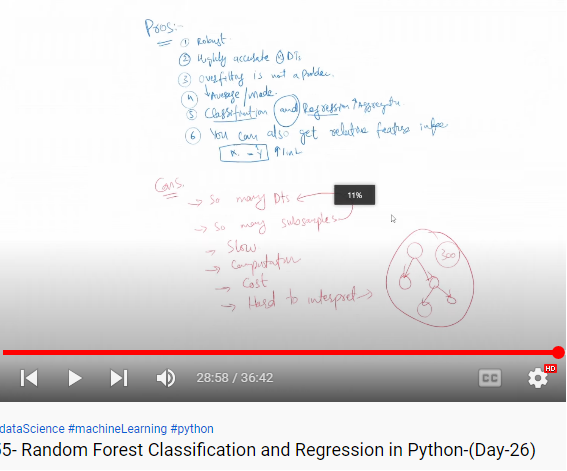 Pros:-
① Robust.
② Highly accurate DTs
③ Overfitting is not a problem.
④ Average/mode.
⑤ Classification and Regression ↑
⑥ You can also get relative feature
Cons.
→ So many DTs ←
11%
→ So many subsamples
→ Slow
→ Computation
→ Cost
→ Hard to interpret →
300
28:58 / 36:42
CC
HD
dataScience #machineLearning #python
55- Random Forest Classification and Regression in Python-(Day-26)